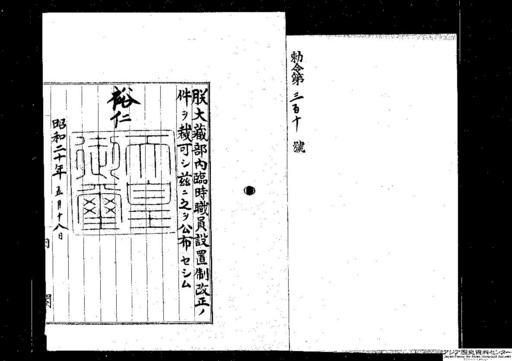 勅令第三百十號
朕大藏部內臨時職員設置制改正ノ
件ヲ裁可シ茲ニ之ヲ公布セシム
裕仁
天皇
御璽
昭和二十年五月十八日
内
閣
アジア歴史資料センター